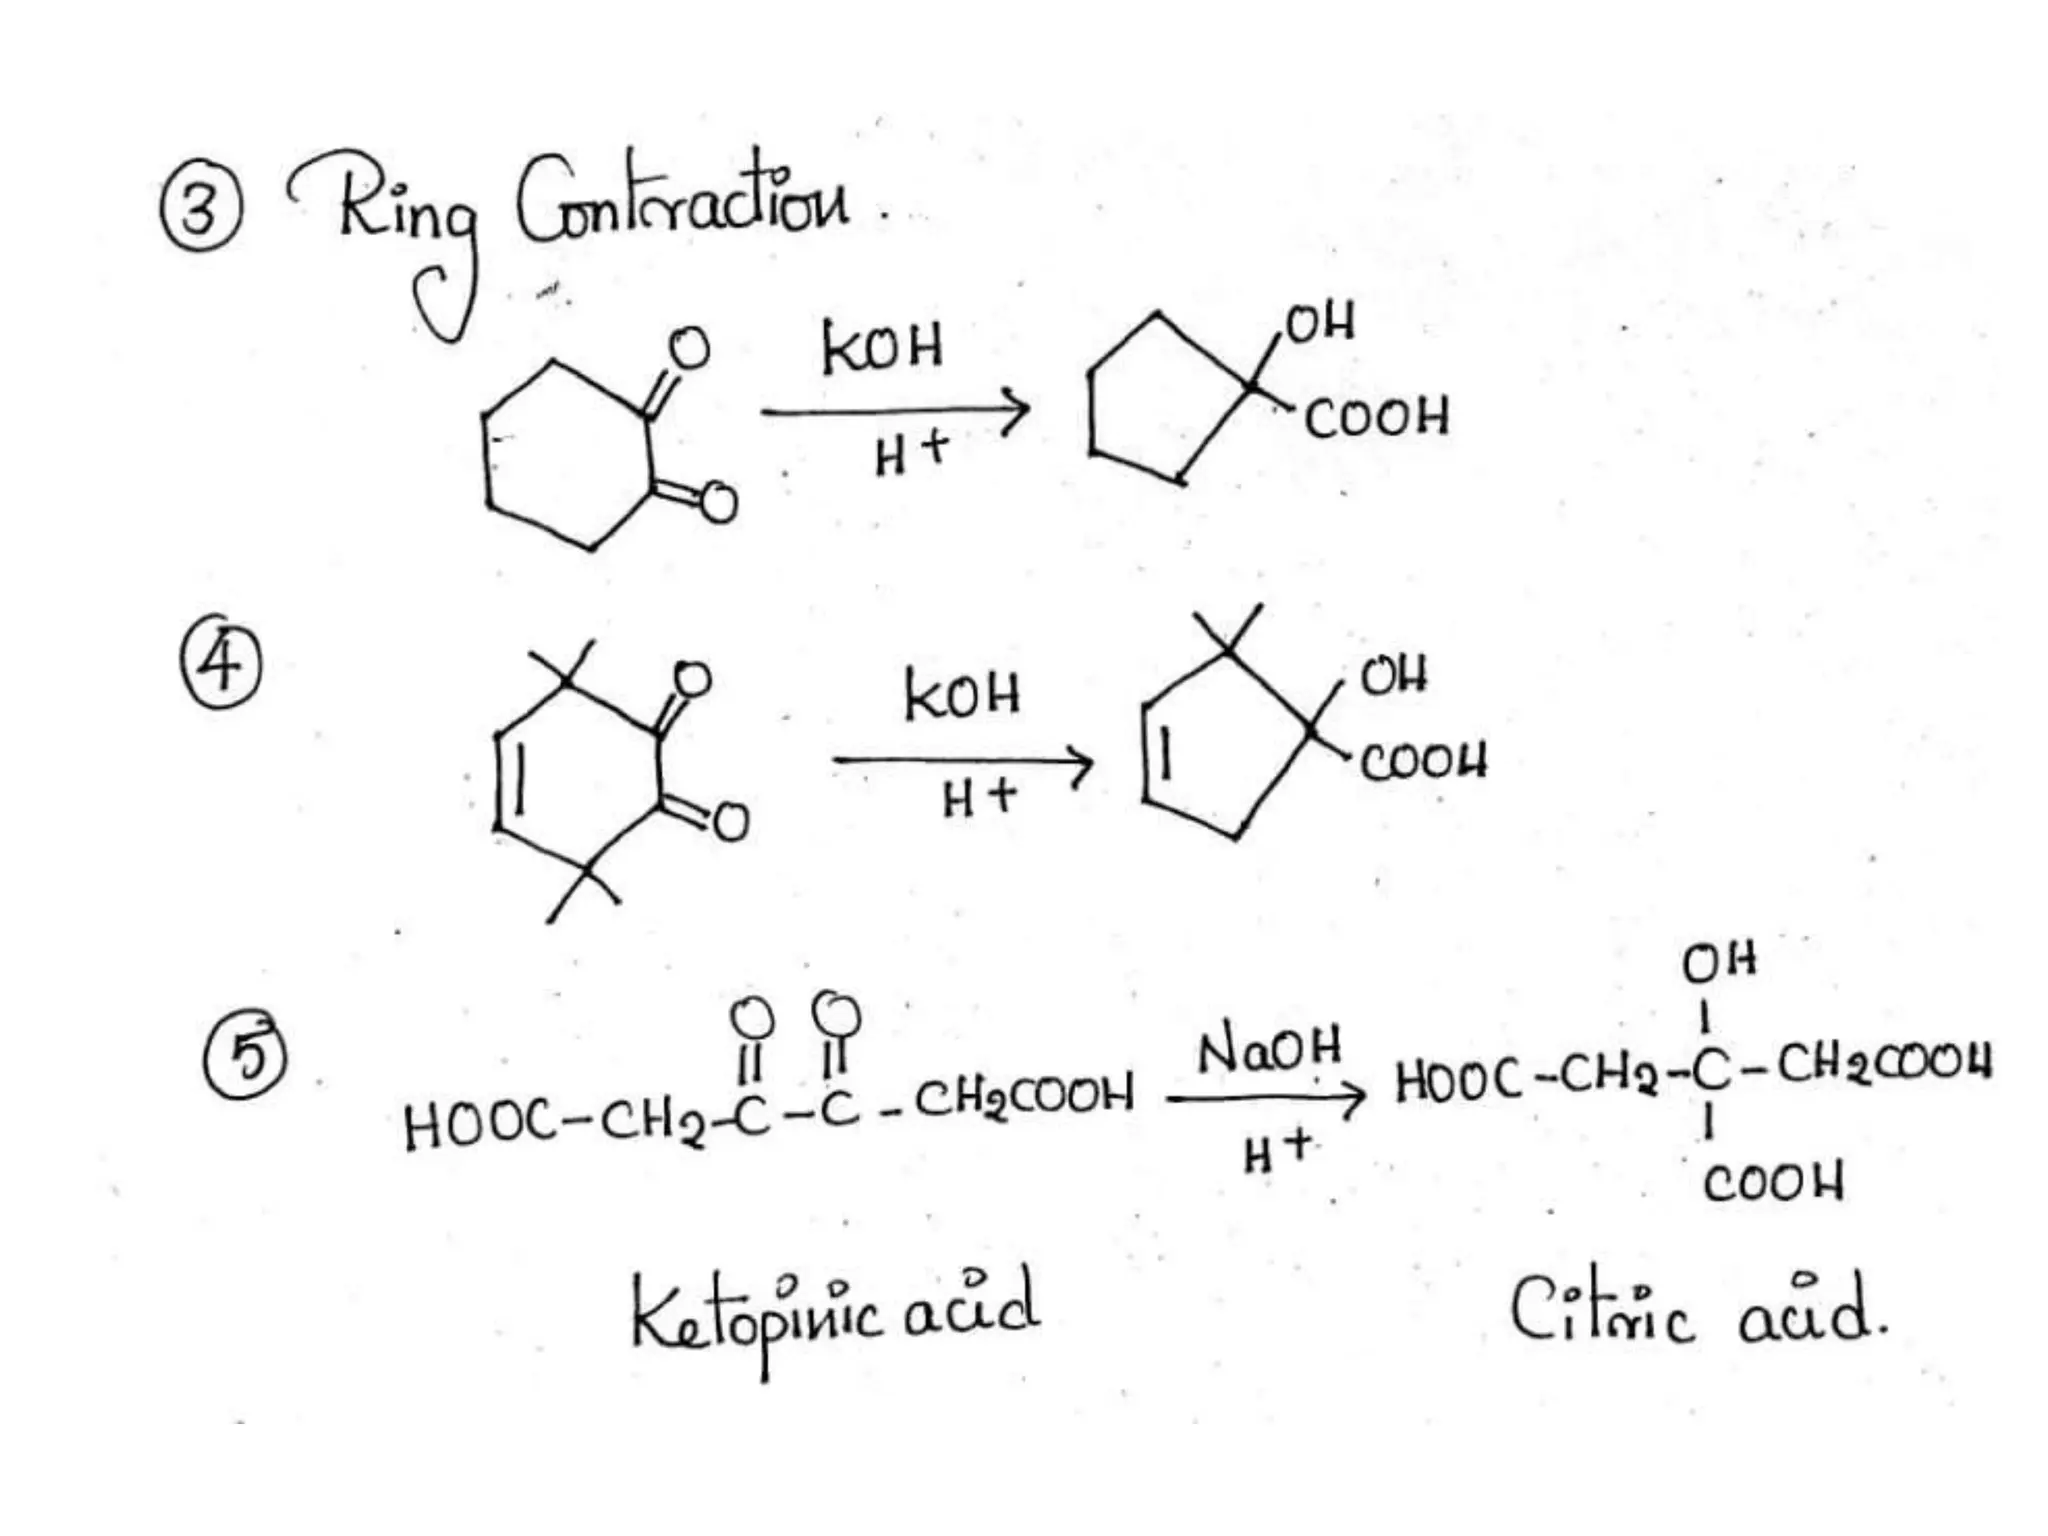 ③ Ring Contraction.
O
KOH
OH
COOH
H+
O
④
O
KOH
OH
COOH
H+
O
⑤
O O
HOOC-CH2-C-C-CH2COOH
NaOH
H+
OH
HOOC-CH2-C-CH2COOH
COOH
Ketopinic acid
Citric acid.